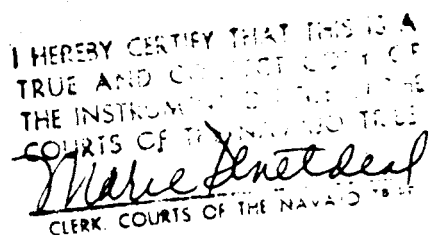 I HEREBY CERTIFY THAT THIS IS A
TRUE AND CORRECT COPY OF
THE INSTRUMENT ON FILE IN THE
COURTS OF THE NAVAJO TRIBE
Marie Denetdeal
CLERK, COURTS OF THE NAVAJO TRIBE